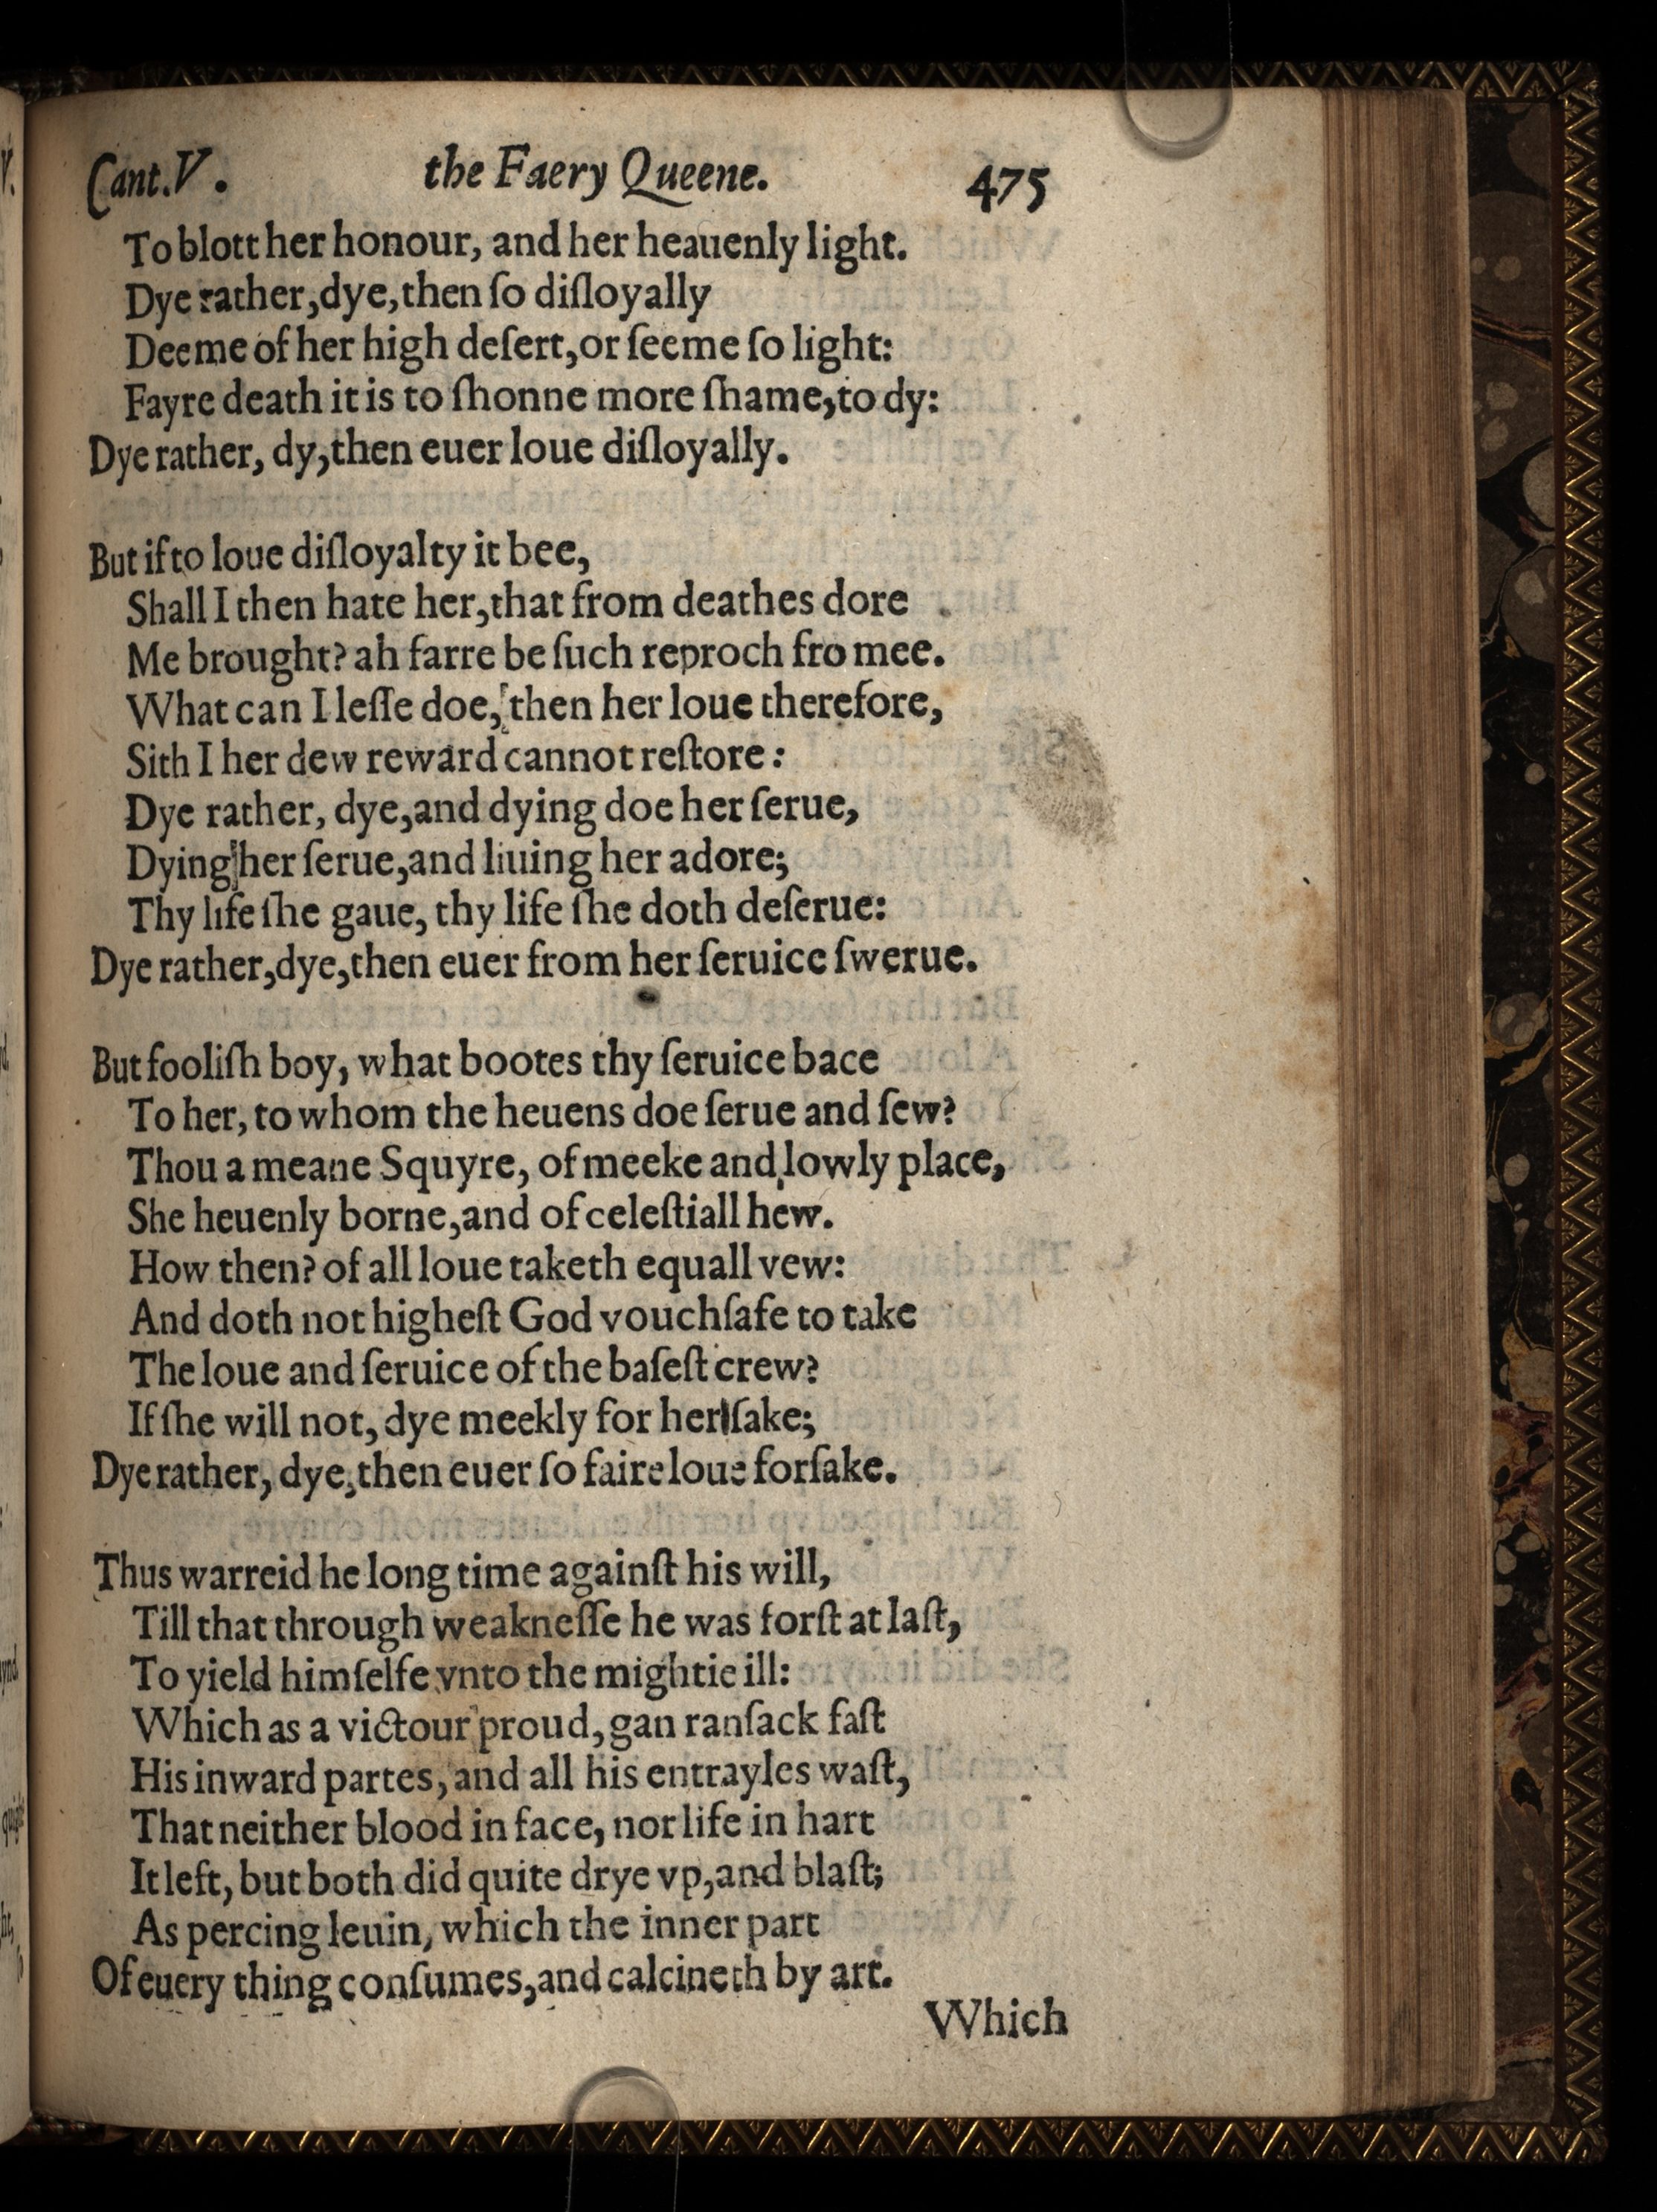 Cant.V. the Faery Queene. 475
To blott her honour, and her heauenly light.
Dye rather,dye,then ſo diſloyally
Deeme of her high deſert,or ſeeme ſo light:
Fayre death it is to ſhonne more ſhame,to dy:
Dye rather, dy,then euer loue diſloyally.
But if to loue diſloyalty it bee,
Shall I then hate her,that from deathes dore
Me brought? ah farre be ſuch reproch fro mee.
What can I leſſe doe, then her loue therefore,
Sith I her dew reward cannot reſtore:
Dye rather, dye,and dying doe her ſerue,
Dying her ſerue,and liuing her adore;
Thy life ſhe gaue, thy life ſhe doth deſerue:
Dye rather,dye,then euer from her ſeruice ſwerue.
But fooliſh boy, what bootes thy ſeruice bace
To her, to whom the heuens doe ſerue and ſew?
Thou a meane Squyre, of meeke and lowly place,
She heuenly borne,and of celeſtiall hew.
How then? of all loue taketh equall vew:
And doth not higheſt God vouchſafe to take
The loue and ſeruice of the baſeſt crew?
If ſhe will not, dye meekly for her ſake;
Dye rather, dye,then euer ſo faire loue forſake.
Thus warreid he long time againſt his will,
Till that through weakneſſe he was forſt at laſt,
To yield himſelfe vnto the mightie ill:
Which as a victour proud, gan ranſack faſt
His inward partes, and all his entrayles waſt,
That neither blood in face, nor life in hart
It left, but both did quite drye vp,and blaſt;
As percing leuin, which the inner part
Of euery thing conſumes,and calcineth by art.
Which